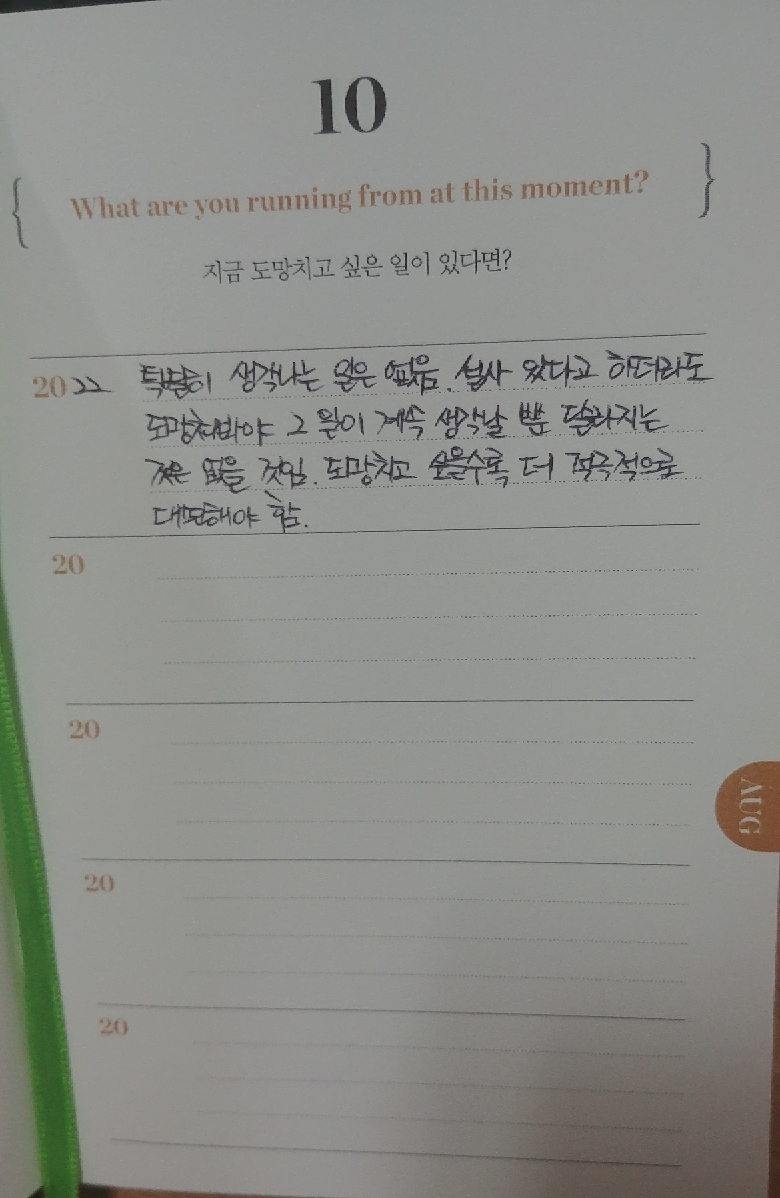 10
What are you running from at this moment?
지금 도망치고 싶은 일이 있다면?
2022 특별히 생각나는 일은 없음. 설사 있다고 하더라도
도망쳐봐야 그 일이 계속 생각날 뿐 달라지는
것은 없을 것임. 도망치고 싶을수록 더 적극적으로
대면해야 함.
20
20
20
20
AUG